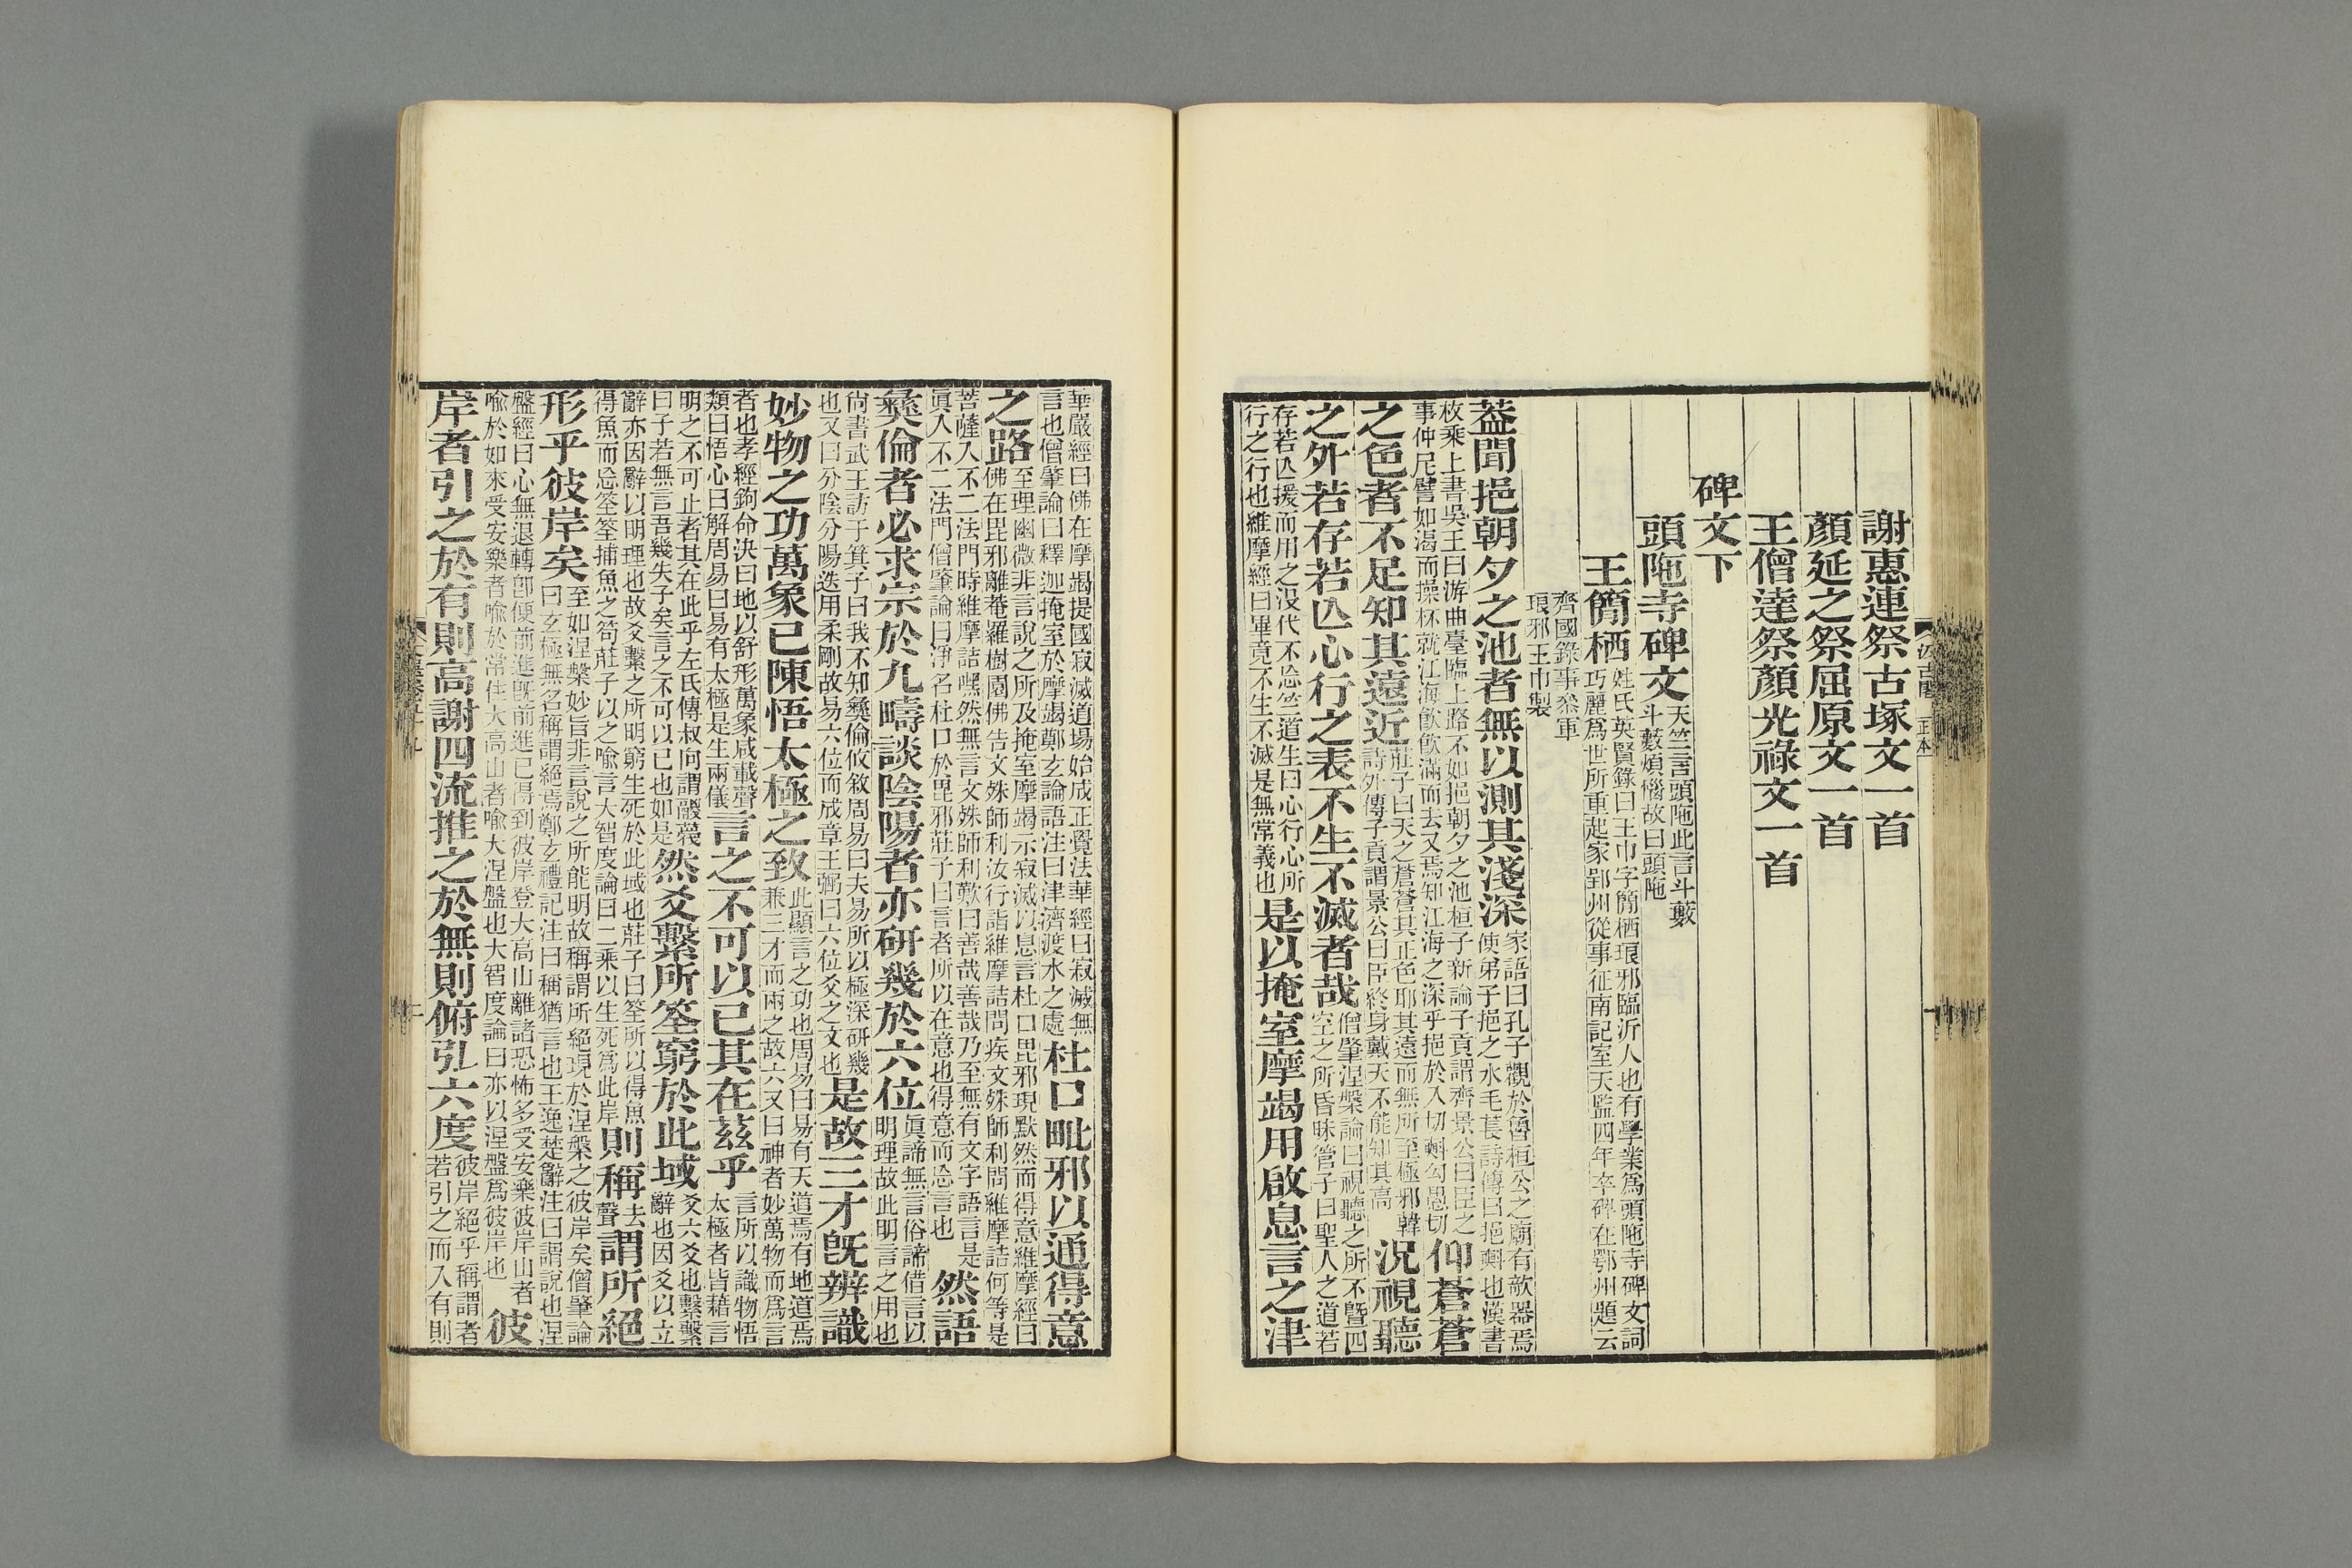 謝惠連祭古塚文一首
顏延之祭屈原文一首
王僧達祭顏光祿文一首
碑文下
頭陁寺碑文天竺言頭陁此言斗藪
斗藪煩惱故曰頭陁
王簡栖姓氏英賢錄曰王巾字簡栖琅邪臨沂人也有學業爲頭陁寺碑文詞
巧麗爲世所重起家郢州從事征南記室天監四年卒碑在鄂州題云
齊國錄事叅軍
琅邪王巾製
蓋聞挹朝夕之池者無以測其淺深家語曰孔子觀於魯桓公之廟有欹器焉
使弟子挹之水毛萇詩傳曰挹㪺也漢書
枚乘上書吳王曰游曲臺臨上路不如挹朝夕之池桓子新論子貢謂齊景公曰臣之
事仲尼譬如渴而操杯就江海飮飮滿而去又焉知江海之深乎挹於入切㪺勾愚切仰蒼蒼
之色者不足知其遠近莊子曰天之蒼蒼其正色耶其遠而無所至極邪韓
詩外傳子貢謂景公曰臣終身戴天不能知其高況視聽
之外若存若亾心行之表不生不滅者哉僧肇涅槃論曰視聽之所不曁四
空之所昏昧管子曰聖人之道若
存若亾援而用之沒代不忘竺道生曰心行心所
行之行也維摩經曰畢竟不生不滅是無常義也是以掩室摩竭用啟息言之津
華嚴經曰佛在摩竭提國寂滅道場始成正覺法華經曰寂滅無
言也僧肇論曰釋迦掩室於摩竭鄭玄論語注曰津濟渡水之處杜口毗邪以通得意
之路至理幽微非言說之所及掩室摩竭示寂滅以息言杜口毘邪現默然而得意維摩經曰
佛在毘邪離菴羅樹園佛告文殊師利汝行詣維摩詰問疾文殊師利問維摩詰何等是
菩薩入不二法門時維摩詰嘿然無言文殊師利歎曰善哉善哉乃至無有文字語言是
眞入不二法門僧肇論曰淨名杜口於毘邪莊子曰言者所以在意也得意而忘言也然語
彝倫者必求宗於九疇談陰陽者亦研幾於六位眞諦無言俗諦借言以
明理故此明言之用也
尙書武王訪于箕子曰我不知彝倫攸敘周易曰夫易所以極深研幾
也又曰分陰分陽迭用柔剛故易六位而成章王弼曰六位爻之文也是故三才旣辨識
妙物之功萬象已陳悟太極之致此顯言之功也周易曰易有天道焉有地道焉
兼三才而兩之故六又曰神者妙萬物而爲言
者也孝經鉤命決曰地以舒形萬象咸載聲
類曰悟心曰解周易曰易有太極是生兩儀言之不可以已其在茲乎言所以識物悟
太極者皆藉言
明之不可止者其在此乎左氏傳叔向謂鬷蔑
曰子若無言吾幾失子矣言之不可以已也如是然爻繫所筌窮於此域爻六爻也繫繫
辭也因爻以立
辭亦因辭以明理也故爻繫之所明窮生死於此域也莊子曰筌所以得魚
得魚而忘筌筌捕魚之笱莊子以之喻言大智度論曰二乘以生死爲此岸則稱去
聲謂所絕
形乎彼岸矣至如涅槃妙旨非言說之所能明故稱謂所絕現於涅槃之彼岸矣僧肇論
曰玄極無名稱謂絕焉鄭玄禮記注曰稱猶言也王逸楚辭注曰謂說也涅
盤經曰心無退轉卽便前進旣前進已得到彼岸登大高山離諸恐怖多受安樂彼岸山者
喻於如來受安樂者喻於常住大高山者喻大涅盤也大智度論曰亦以涅盤爲彼岸也彼
岸者引之於有則高謝四流推之於無則俯弘六度彼岸絕乎稱謂者
若引之而入有則